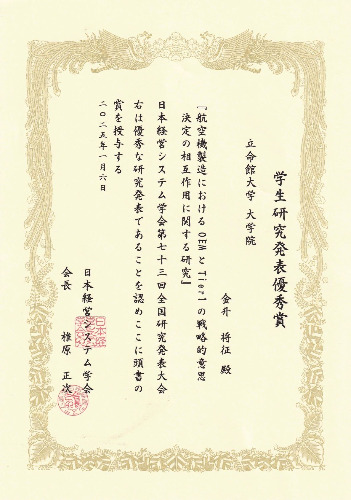 学生研究発表優秀賞
立命館大学 大学院
金升 将征 殿
『航空機製造における OEM と Tier1 の戦略的意思
決定の相互作用に関する研究』
日本経営システム学会第七十三回全国研究発表大会
右は優秀な研究発表であることを認めここに頭書の
賞を授与する
二〇二五年一月六日
日本経営システム学会
会長 椎原 正次